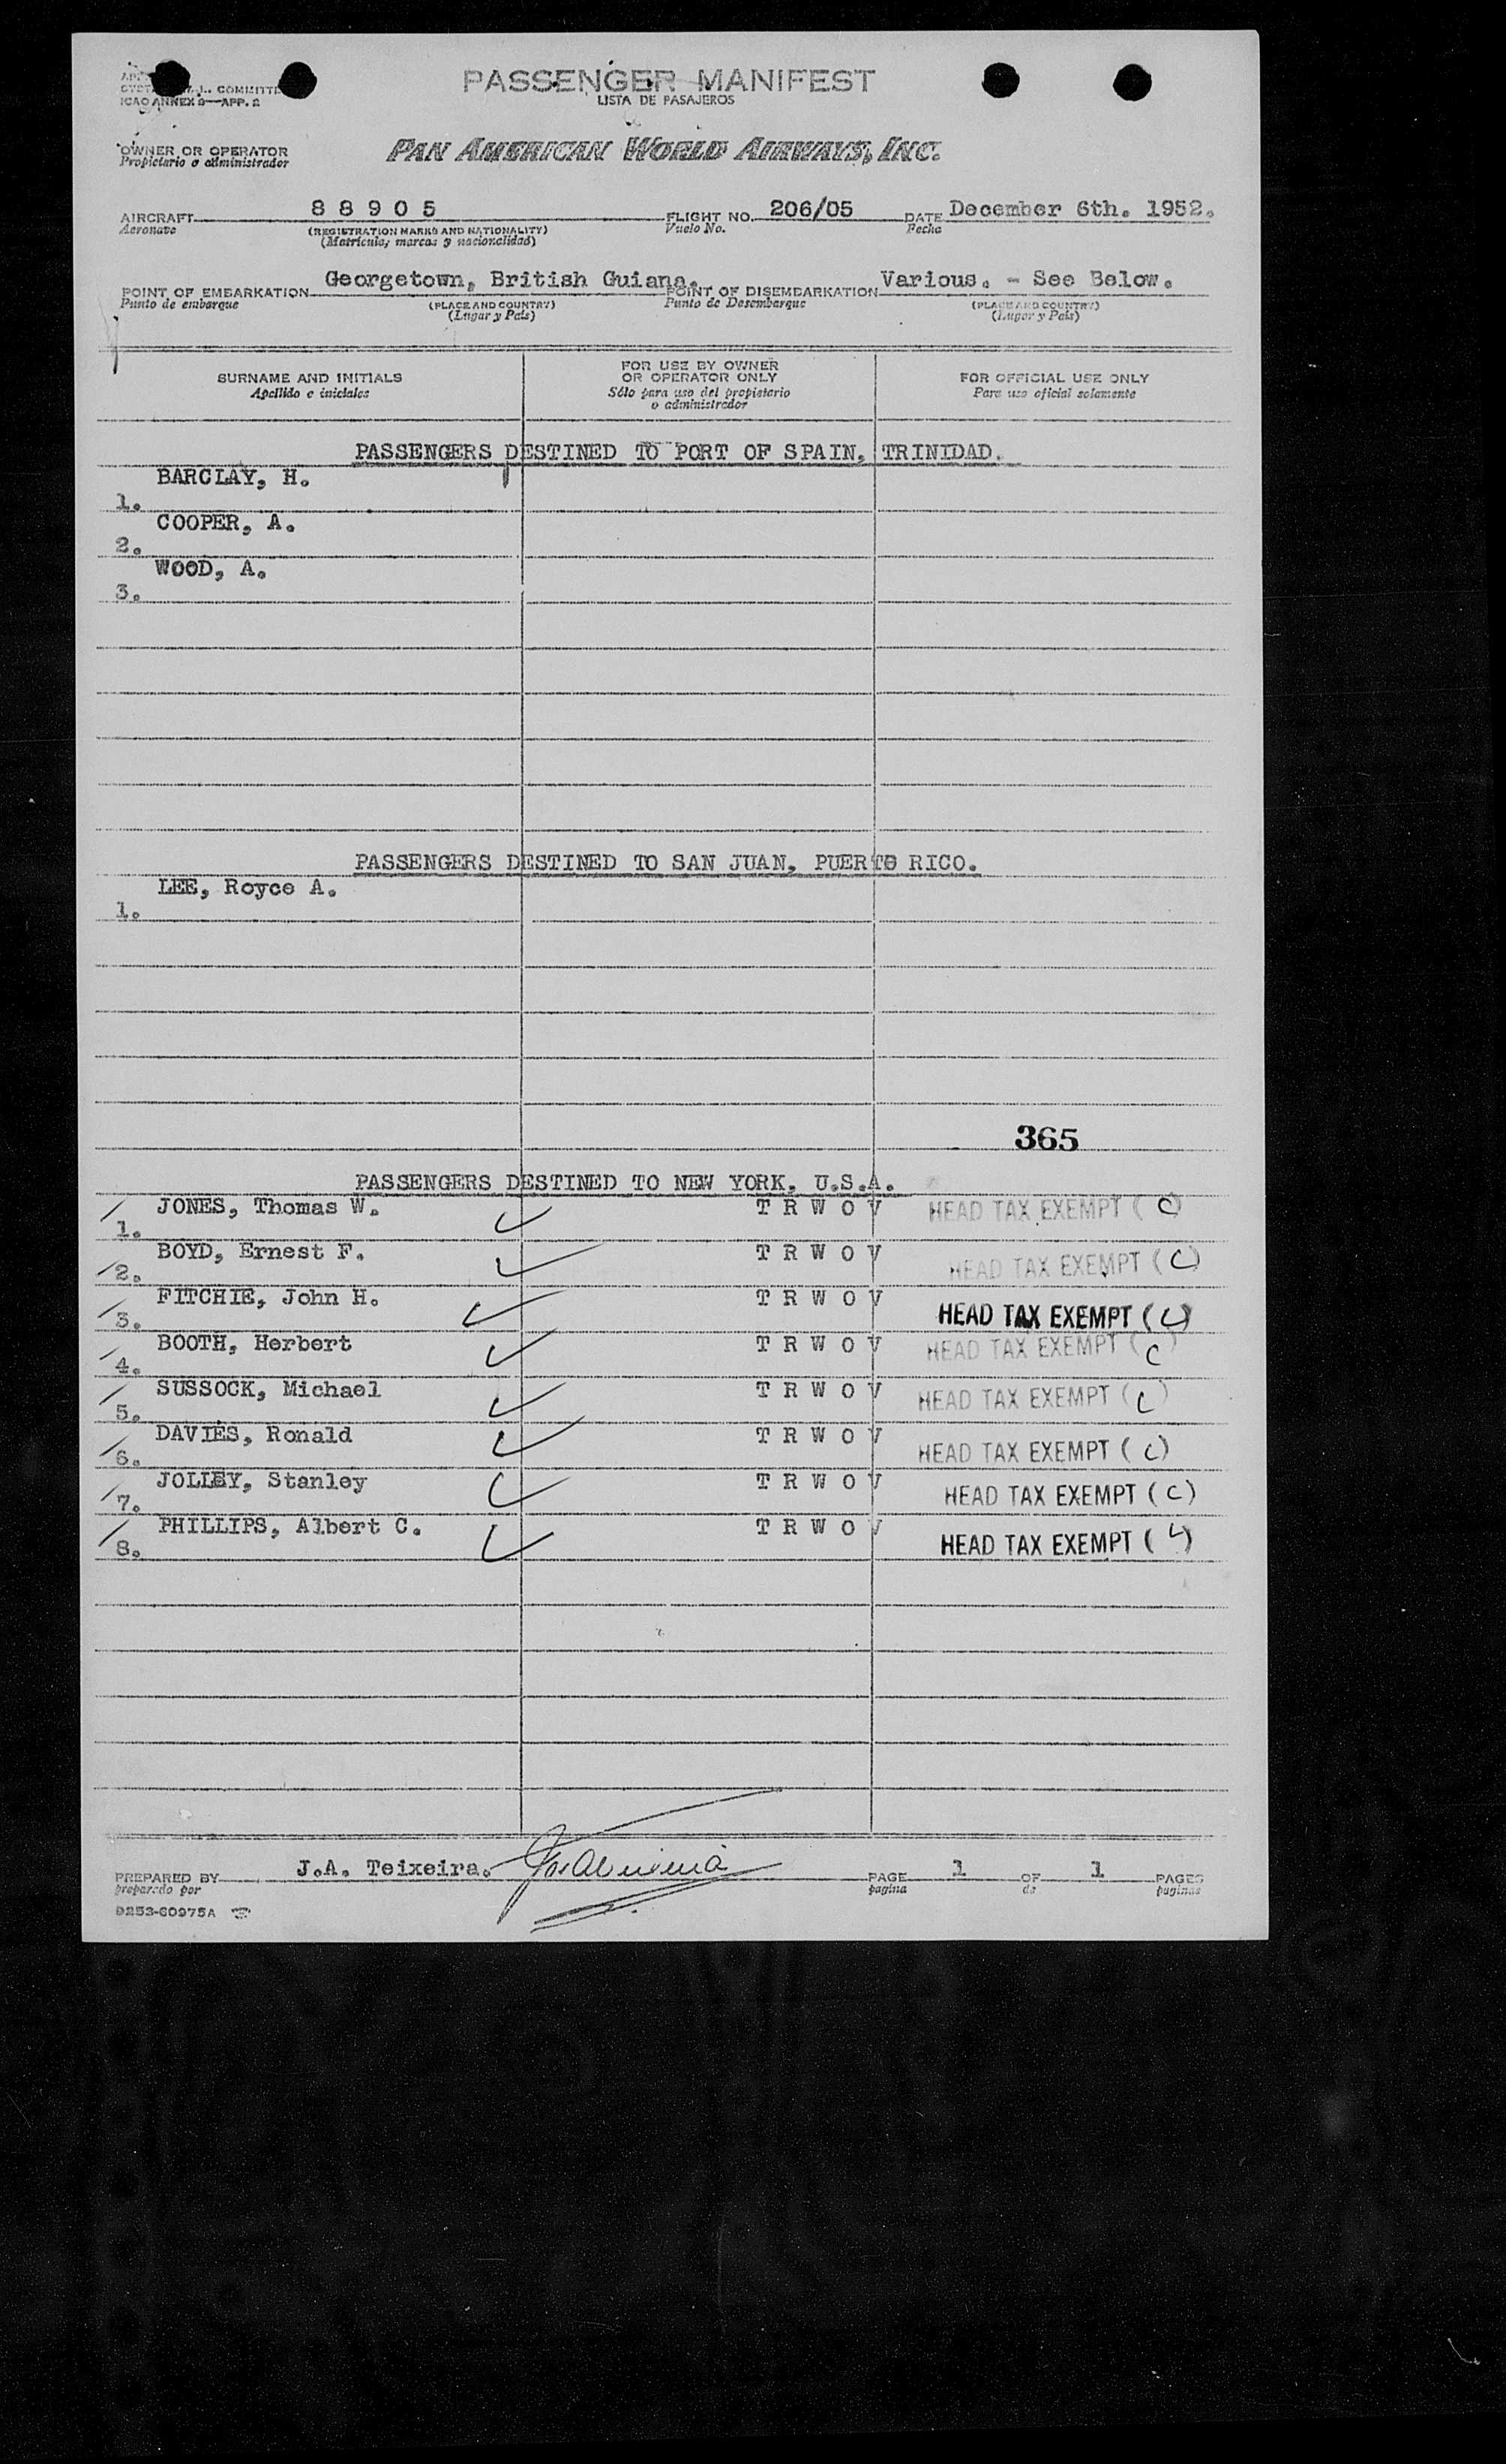 PASSENGER MANIFEST
COMMITTE
LISTA DE PASAJEROS
ICAO ANNEX 9—APP. 2
OWNER OR OPERATOR
Propietario o administrador
PAN AMERICAN WORLD AIRWAYS, INC.
AIRCRAFT 88905 FLIGHT NO. 206/05 DATE December 6th. 1952.
Aeronave (REGISTRATION MARKS AND NATIONALITY) Vuelo No. Fecha
(Matrícula, marcas y nacionalidad)
POINT OF EMBARKATION Georgetown, British Guiana. POINT OF DISEMBARKATION Various. - See Below.
Punto de embarque (PLACE AND COUNTRY) Punto de Desembarque (PLACE AND COUNTRY)
(Lugar y País) (Lugar y País)
SURNAME AND INITIALS FOR USE BY OWNER OR OPERATOR ONLY FOR OFFICIAL USE ONLY
Apellido e iniciales Sólo para uso del propietario o administrador Para uso oficial solamente
PASSENGERS DESTINED TO PORT OF SPAIN, TRINIDAD.
1. BARCLAY, H.
2. COOPER, A.
3. WOOD, A.
PASSENGERS DESTINED TO SAN JUAN, PUERTO RICO.
1. LEE, Royce A.
365
PASSENGERS DESTINED TO NEW YORK, U.S.A.
1. JONES, Thomas W. T R W O V HEAD TAX EXEMPT (C)
2. BOYD, Ernest F. T R W O V HEAD TAX EXEMPT (C)
3. FITCHIE, John H. T R W O V HEAD TAX EXEMPT (C)
4. BOOTH, Herbert T R W O V HEAD TAX EXEMPT (C)
5. SUSSOCK, Michael T R W O V HEAD TAX EXEMPT (C)
6. DAVIES, Ronald T R W O V HEAD TAX EXEMPT (C)
7. JOLLEY, Stanley T R W O V HEAD TAX EXEMPT (C)
8. PHILLIPS, Albert C. T R W O V HEAD TAX EXEMPT (C)
PREPARED BY J.A. Teixeira. PAGE 1 OF 1 PAGES
preparado por pagina de paginas
9253-60975A